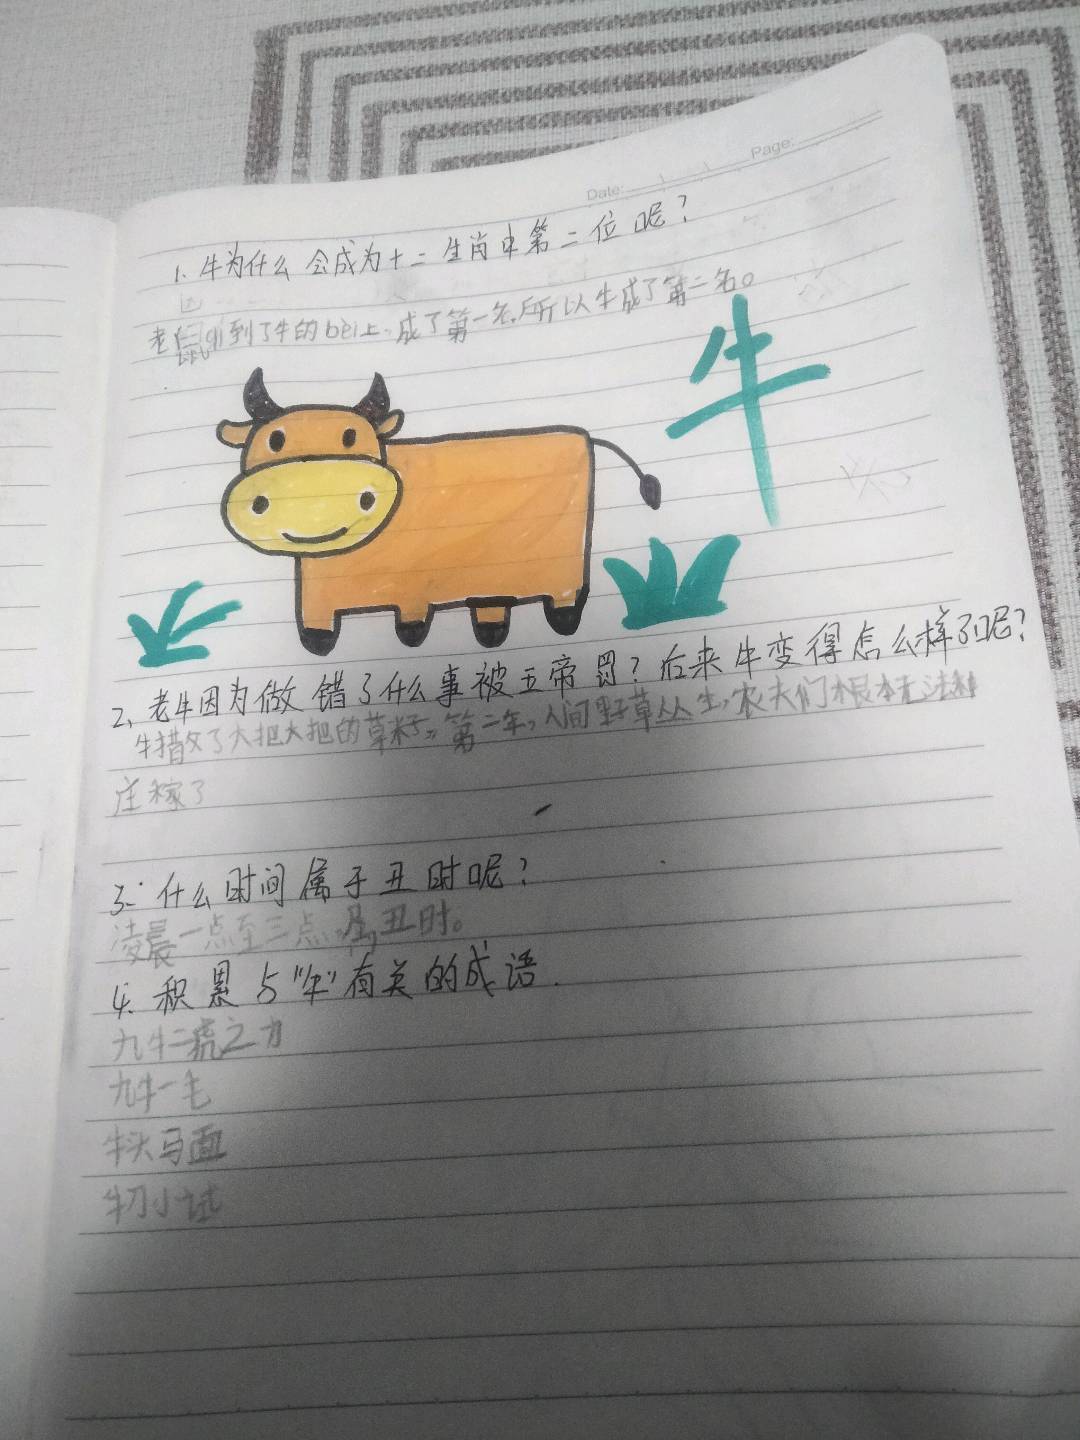 Date: Page:
1. 牛为什么会成为十二生肖中第二位呢？
老 到了牛的bèi上，成了第一名，所以牛成了第二名。
牛
2、老牛因为做错了什么事被玉帝罚？后来牛变得怎么样了呢？
牛措攵了大把大把的草籽，第二年，人间野草丛生，农夫们根本无法种
庄稼了
3. 什么时间属于丑时呢？
凌晨一点至三点 丑时。
4. 积累与"牛"有关的成语.
九牛二虎之力
九牛一毛
牛头马面
牛刀小试